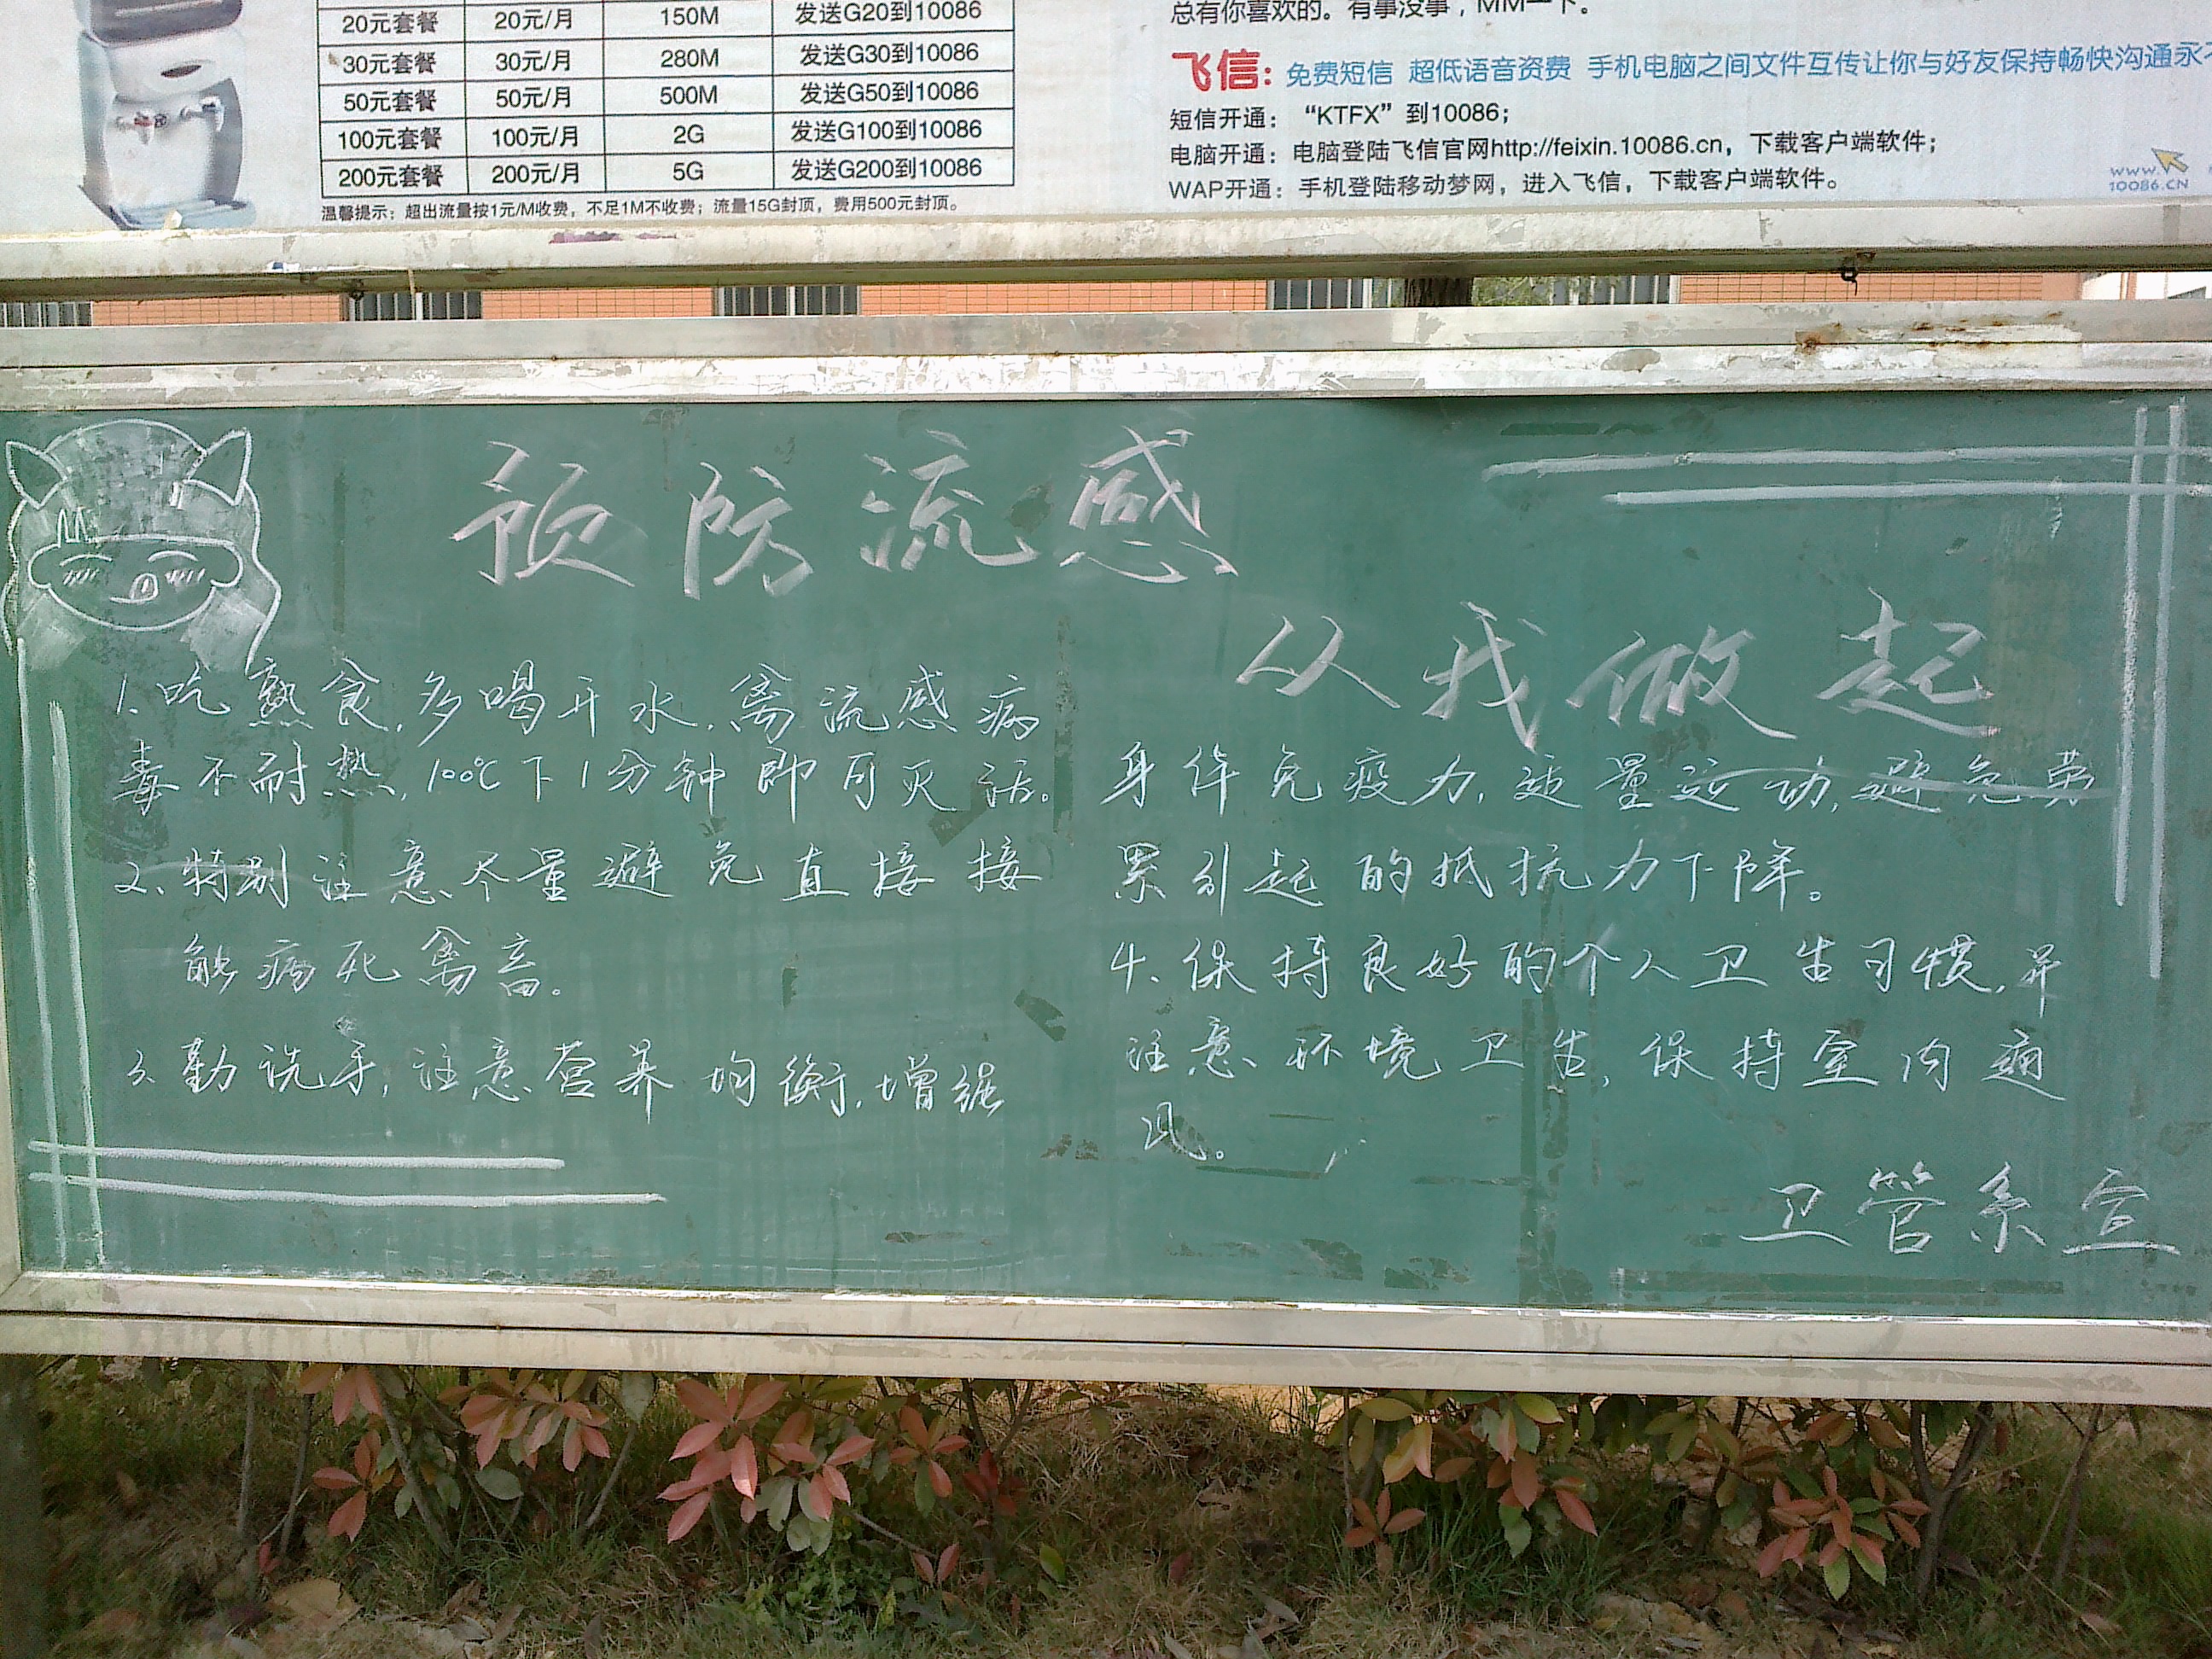 20元套餐 20元/月 150M 发送G20到10086
30元套餐 30元/月 280M 发送G30到10086
50元套餐 50元/月 500M 发送G50到10086
100元套餐 100元/月 2G 发送G100到10086
200元套餐 200元/月 5G 发送G200到10086
温馨提示：超出流量按1元/M收费，不足1M不收费；流量15G封顶，费用500元封顶。
总有你喜欢的。有事没事，MM一下。
飞信：免费短信 超低语音资费 手机电脑之间文件互传让你与好友保持畅快沟通永不
短信开通：“KTFX”到10086；
电脑开通：电脑登陆飞信官网http://feixin.10086.cn，下载客户端软件；
WAP开通：手机登陆移动梦网，进入飞信，下载客户端软件。
www.
10086.CN
预防流感
从我做起
1、吃熟食,多喝开水,禽流感病
毒不耐热,100℃下1分钟即可灭活。
2、特别注意尽量避免直接接
触病死禽畜。
3、勤洗手,注意营养均衡,增强
身体免疫力,适量运动,避免劳
累引起的抵抗力下降。
4、保持良好的个人卫生习惯,并
注意环境卫生,保持室内通
风。
卫管系宣